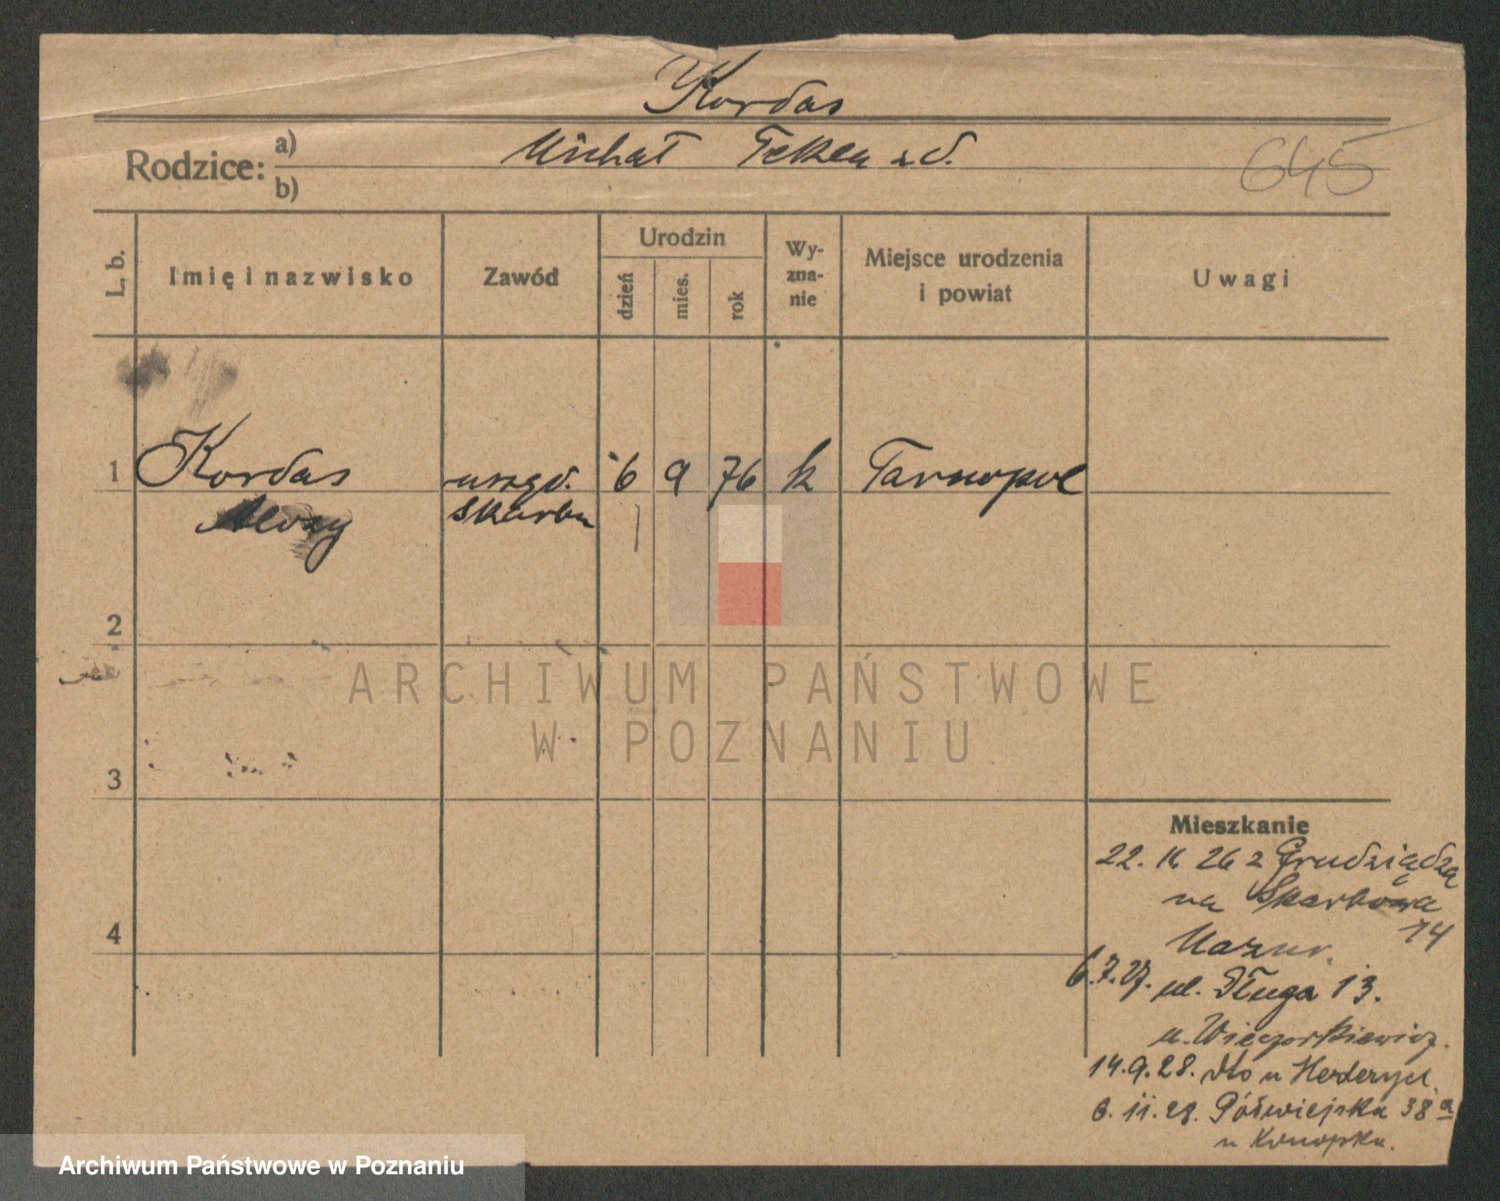 Kordas
Rodzice: a) Michał Tekla z d.
b)
645
L. b.
Imię i nazwisko
Zawód
Urodzin
dzień
mies.
rok
Wy-
zna-
nie
Miejsce urodzenia
i powiat
Uwagi
1 Kordas urzęd. 6 9 76 k Tarnopol
Alozy skarbu
2
3
4
Mieszkanie
22. 26 z Grudziądza
na Skarbowa
14
Mazur.
6.7.27. ul. Długa 13.
u. Wieczorkiewicz.
14.9.28. dto u
6.11.28. Półwiejska 38a
u Konopka.
ARCHIWUM PAŃSTWOWE
W POZNANIU
Archiwum Państwowe w Poznaniu